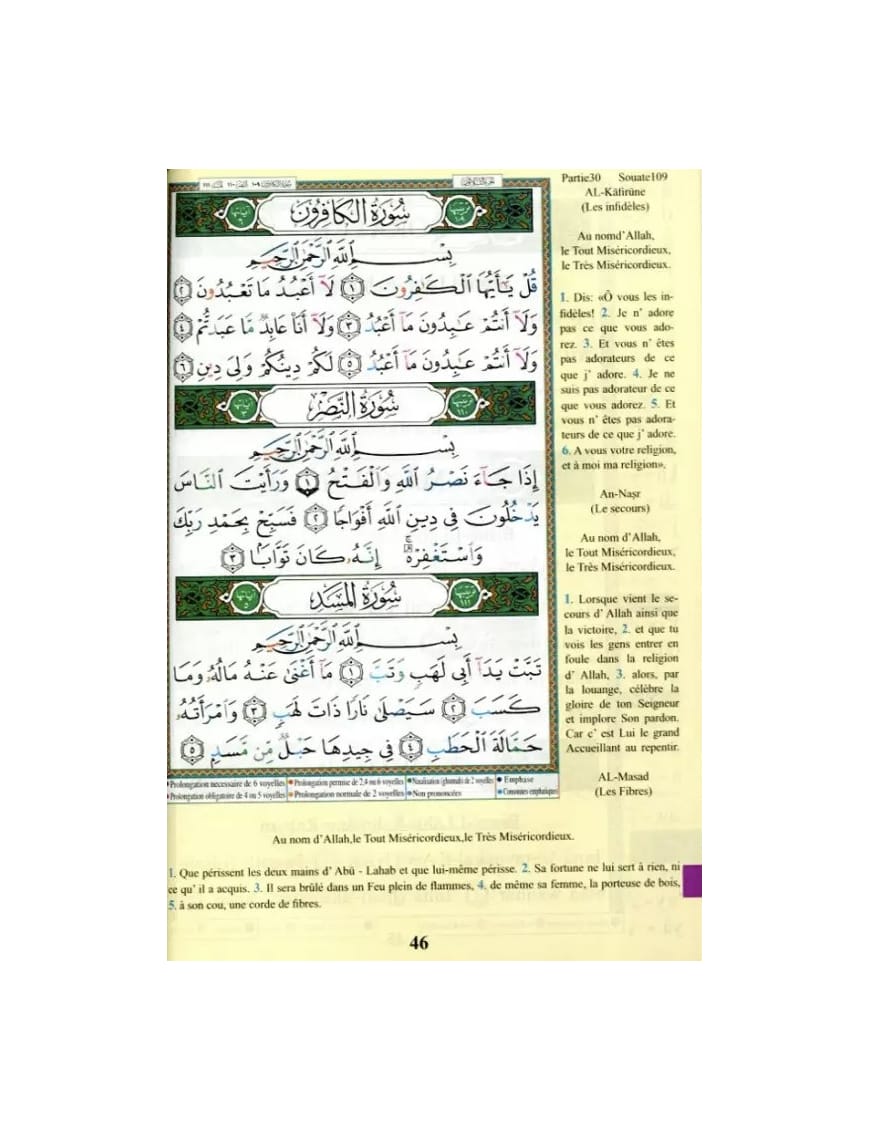 Partie30 Souate109
AL-Kāfirūne
(Les infidèles)
Au nomd'Allah,
le Tout Miséricordieux,
le Très Miséricordieux.
1. Dis: «Ô vous les in-
fidèles! 2. Je n' adore
pas ce que vous ado-
rez. 3. Et vous n' êtes
pas adorateurs de ce
que j' adore. 4. Je ne
suis pas adorateur de ce
que vous adorez. 5. Et
vous n' êtes pas adora-
teurs de ce que j' adore.
6. A vous votre religion,
et à moi ma religion».
An-Naṣr
(Le secours)
Au nom d'Allah,
le Tout Miséricordieux,
le Très Miséricordieux.
1. Lorsque vient le se-
cours d' Allah ainsi que
la victoire, 2. et que tu
vois les gens entrer en
foule dans la religion
d' Allah, 3. alors, par
la louange, célèbre la
gloire de ton Seigneur
et implore Son pardon.
Car c' est Lui le grand
Accueillant au repentir.
AL-Masad
(Les Fibres)
سُورَةُ الكَافِرُونَ
بِسْمِ ٱللَّهِ ٱلرَّحْمَٰنِ ٱلرَّحِيمِ
قُلْ يَٰٓأَيُّهَا ٱلْكَٰفِرُونَ ١ لَآ أَعْبُدُ مَا تَعْبُدُونَ ٢
وَلَآ أَنتُمْ عَٰبِدُونَ مَآ أَعْبُدُ ٣ وَلَآ أَنَا۠ عَابِدٌ مَّا عَبَدتُّمْ ٤
وَلَآ أَنتُمْ عَٰبِدُونَ مَآ أَعْبُدُ ٥ لَكُمْ دِينُكُمْ وَلِىَ دِينِ ٦
سُورَةُ النَّصْرِ
بِسْمِ ٱللَّهِ ٱلرَّحْمَٰنِ ٱلرَّحِيمِ
إِذَا جَآءَ نَصْرُ ٱللَّهِ وَٱلْفَتْحُ ١ وَرَأَيْتَ ٱلنَّاسَ
يَدْخُلُونَ فِى دِينِ ٱللَّهِ أَفْوَاجًا ٢ فَسَبِّحْ بِحَمْدِ رَبِّكَ
وَٱسْتَغْفِرْهُ ۚ إِنَّهُۥ كَانَ تَوَّابًۢا ٣
سُورَةُ المَسَدِ
بِسْمِ ٱللَّهِ ٱلرَّحْمَٰنِ ٱلرَّحِيمِ
تَبَّتْ يَدَآ أَبِى لَهَبٍ وَتَبَّ ١ مَآ أَغْنَىٰ عَنْهُ مَالُهُۥ وَمَا
كَسَبَ ٢ سَيَصْلَىٰ نَارًا ذَاتَ لَهَبٍ ٣ وَٱمْرَأَتُهُۥ
حَمَّالَةَ ٱلْحَطَبِ ٤ فِى جِيدِهَا حَبْلٌ مِّن مَّسَدٍۭ ٥
Prolongation necessaire de 6 voyelles Prolongation permise de 2,4 ou 6 voyelles Nasalisation (ghunnah) de 2 voyelles Emphase
Prolongation obligatoire de 4 ou 5 voyelles Prolongation normale de 2 voyelles Non prononcées Consonnes emphatiques
Au nom d'Allah,le Tout Miséricordieux,le Très Miséricordieux.
1. Que périssent les deux mains d' Abū - Lahab et que lui-même périsse. 2. Sa fortune ne lui sert à rien, ni
ce qu' il a acquis. 3. Il sera brûlé dans un Feu plein de flammes, 4. de même sa femme, la porteuse de bois,
5. à son cou, une corde de fibres.
46